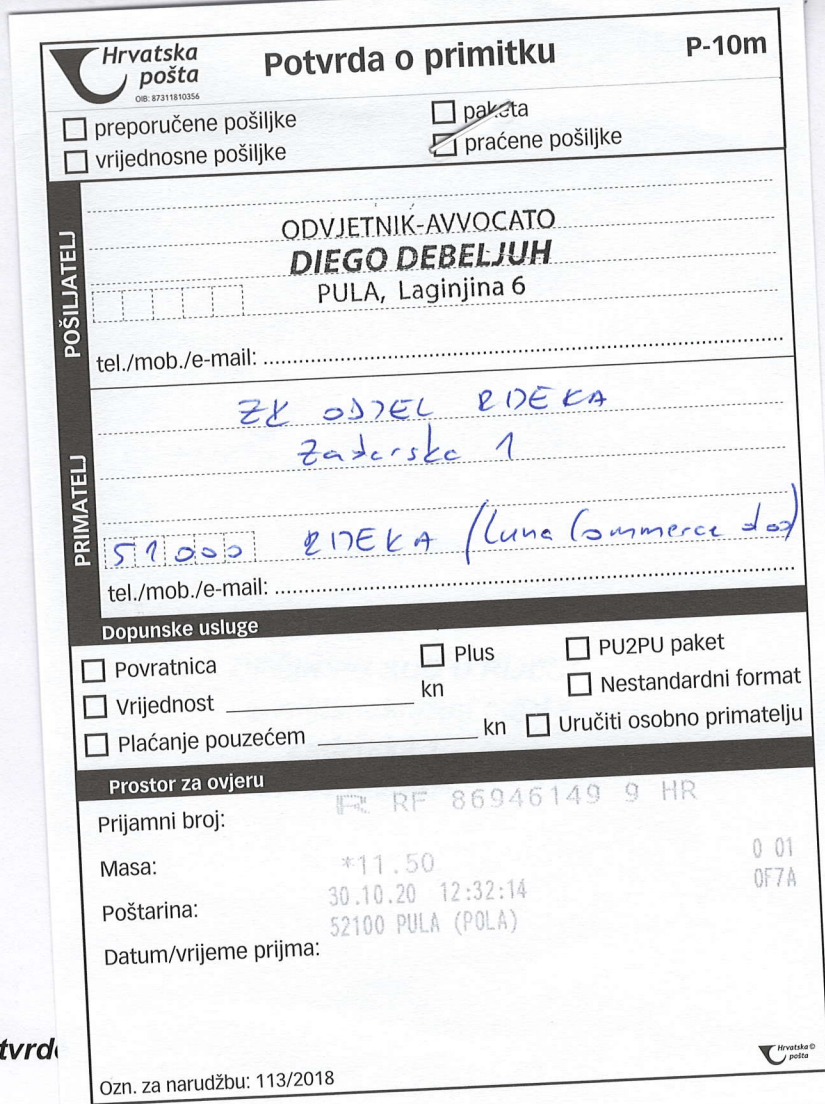 Hrvatska pošta
OIB: 87311810356
Potvrda o primitku
P-10m
preporučene pošiljke
paketa
vrijednosne pošiljke
praćene pošiljke
POŠILJATELJ
ODVJETNIK-AVVOCATO
DIEGO DEBELJUH
PULA, Laginjina 6
tel./mob./e-mail:
PRIMATELJ
ZK ODJEL RIJEKA
Zadarska 1
51000 RIJEKA (Luna Commerce doo)
tel./mob./e-mail:
Dopunske usluge
Povratnica
Plus
PU2PU paket
Vrijednost kn
Nestandardni format
Plaćanje pouzećem kn
Uručiti osobno primatelju
Prostor za ovjeru
Prijamni broj: R RF 86946149 9 HR
Masa: *11.50 0 01
30.10.20 12:32:14 0F7A
Poštarina: 52100 PULA (POLA)
Datum/vrijeme prijma:
tvrd
Ozn. za narudžbu: 113/2018
Hrvatska pošta